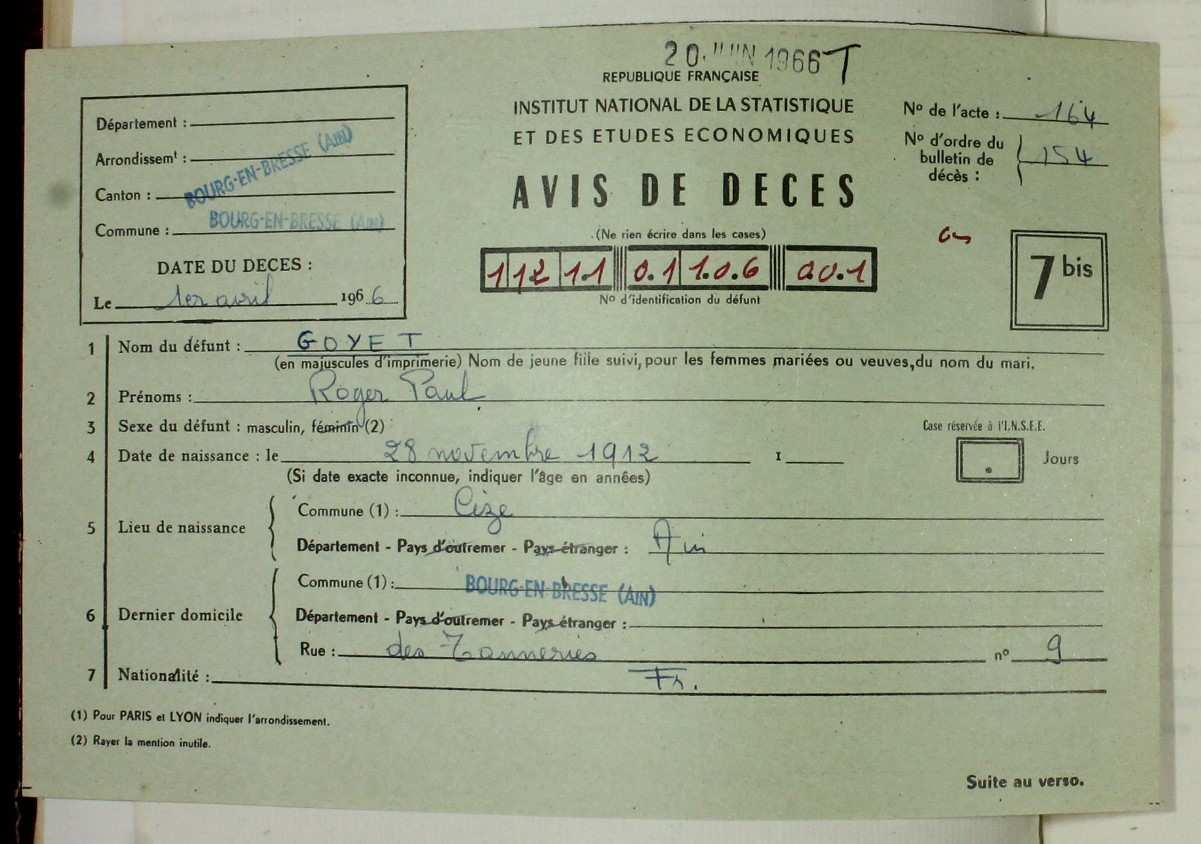 20 JUIN 1966 T
REPUBLIQUE FRANÇAISE
INSTITUT NATIONAL DE LA STATISTIQUE
ET DES ETUDES ECONOMIQUES
AVIS DE DECES
Département :
Arrondissemt :
Canton : BOURG-EN-BRESSE (AIN)
Commune : BOURG-EN-BRESSE (AIN)
DATE DU DECES :
Le 1er avril 1966
N° de l'acte : 164
N° d'ordre du
bulletin de
décès : 154
(Ne rien écrire dans les cases)
1 12 11 01 106 001
N° d'identification du défunt
7 bis
1 Nom du défunt : GOYET
(en majuscules d'imprimerie) Nom de jeune fille suivi, pour les femmes mariées ou veuves, du nom du mari.
2 Prénoms : Roger Paul
3 Sexe du défunt : masculin, féminin (2)
Case réservée à l'I.N.S.E.E.
4 Date de naissance : le 28 novembre 1912 1
Jours
(Si date exacte inconnue, indiquer l'âge en années)
5 Lieu de naissance
Commune (1) : Cize
Département - Pays d'outremer - Pays étranger : Ain
6 Dernier domicile
Commune (1) : BOURG-EN-BRESSE (AIN)
Département - Pays d'outremer - Pays étranger :
Rue : des Tanneries n° 9
7 Nationalité : Fr.
(1) Pour PARIS et LYON indiquer l'arrondissement.
(2) Rayer la mention inutile.
Suite au verso.